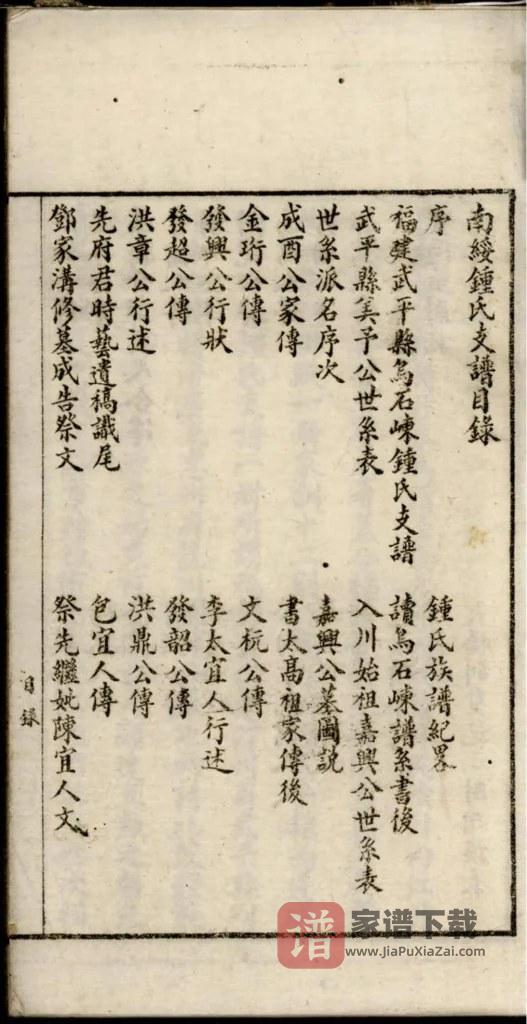 南綏鍾氏支譜目錄
序
鍾氏族譜紀畧
福建武平縣烏石崠鍾氏支譜
讀烏石崠譜系書後
武平縣美予公世系表
入川始祖嘉興公世系表
世系派名序次
嘉興公墓圖說
成酉公家傳
書太高祖家傳後
金珩公傳
文杬公傳
發興公行狀
李太宜人行述
發超公傳
發韶公傳
洪章公行述
洪鼎公傳
先府君時藝遺稿識尾
包宜人傳
鄧家溝修墓成告祭文
祭先繼妣陳宜人文
目錄
谱 家谱下载
www.JiaPuXiaZai.com